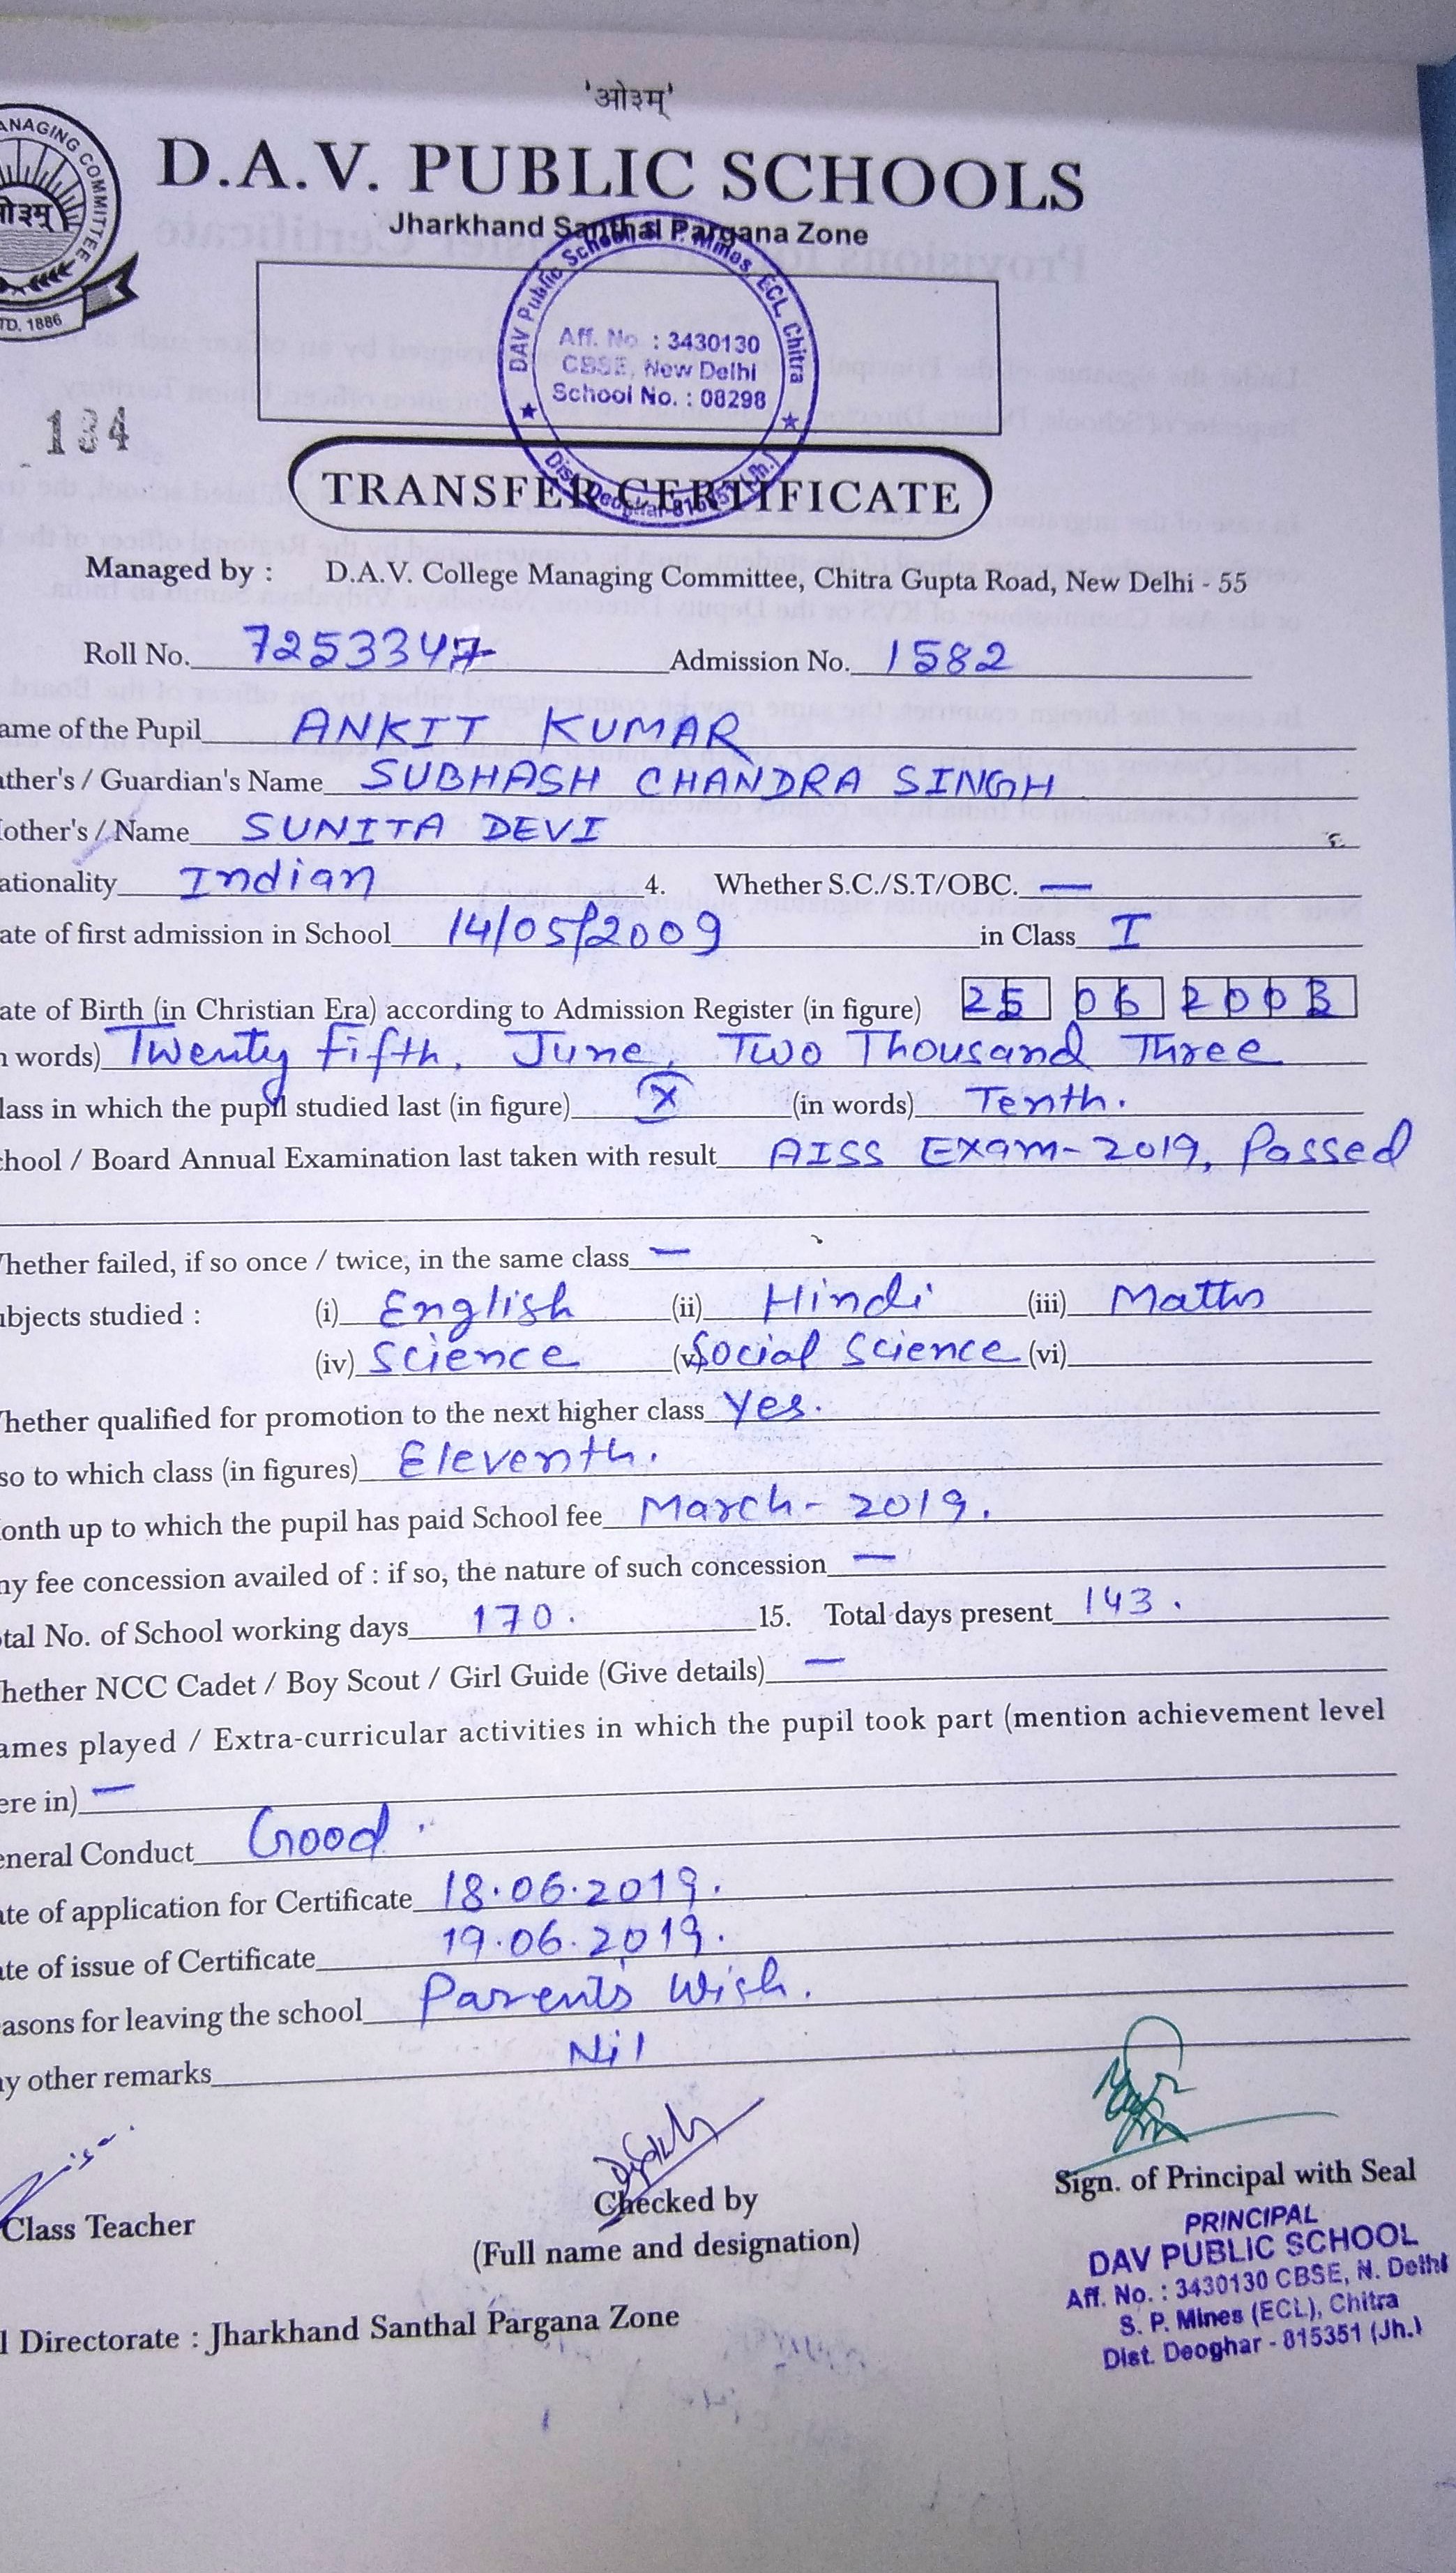 'ओ३म्'
ANAGING COMMITTEE
ओ३म्
TD. 1886
D.A.V. PUBLIC SCHOOLS
Jharkhand Santhal Pargana Zone
DAV Public School, S. P. Mines, ECL, Chitra
Aff. No : 3430130
CBSE, New Delhi
School No. : 08298
Dist. Deoghar-815351 (Jh.)
134
TRANSFER CERTIFICATE
Managed by : D.A.V. College Managing Committee, Chitra Gupta Road, New Delhi - 55
Roll No. 7253347 Admission No. 1582
ame of the Pupil ANKIT KUMAR
ather's / Guardian's Name SUBHASH CHANDRA SINGH
other's / Name SUNITA DEVI
ationality Indian 4. Whether S.C./S.T/OBC. —
ate of first admission in School 14/05/2009 in Class I
ate of Birth (in Christian Era) according to Admission Register (in figure) 25 06 2003
n words) Twenty Fifth, June, Two Thousand Three
lass in which the pupil studied last (in figure) X (in words) Tenth.
chool / Board Annual Examination last taken with result AISS Exam-2019, Passed
hether failed, if so once / twice, in the same class —
ubjects studied : (i) English (ii) Hindi (iii) Maths
(iv) Science (v) Social Science (vi)
hether qualified for promotion to the next higher class Yes.
so to which class (in figures) Eleventh.
onth up to which the pupil has paid School fee March - 2019.
ny fee concession availed of : if so, the nature of such concession —
otal No. of School working days 170. 15. Total days present 143.
hether NCC Cadet / Boy Scout / Girl Guide (Give details) —
ames played / Extra-curricular activities in which the pupil took part (mention achievement level
ere in) —
eneral Conduct Good.
ate of application for Certificate 18.06.2019.
ate of issue of Certificate 19.06.2019.
easons for leaving the school Parent's Wish.
ny other remarks Nil
Class Teacher
Checked by
(Full name and designation)
Sign. of Principal with Seal
PRINCIPAL
DAV PUBLIC SCHOOL
Aff. No. : 3430130 CBSE, N. Delhi
S. P. Mines (ECL), Chitra
Dist. Deoghar - 815351 (Jh.)
l Directorate : Jharkhand Santhal Pargana Zone